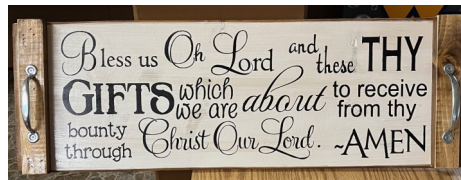 Bless us Oh Lord and these THY
GIFTS which we are about to receive from thy
bounty through Christ Our Lord. ~AMEN